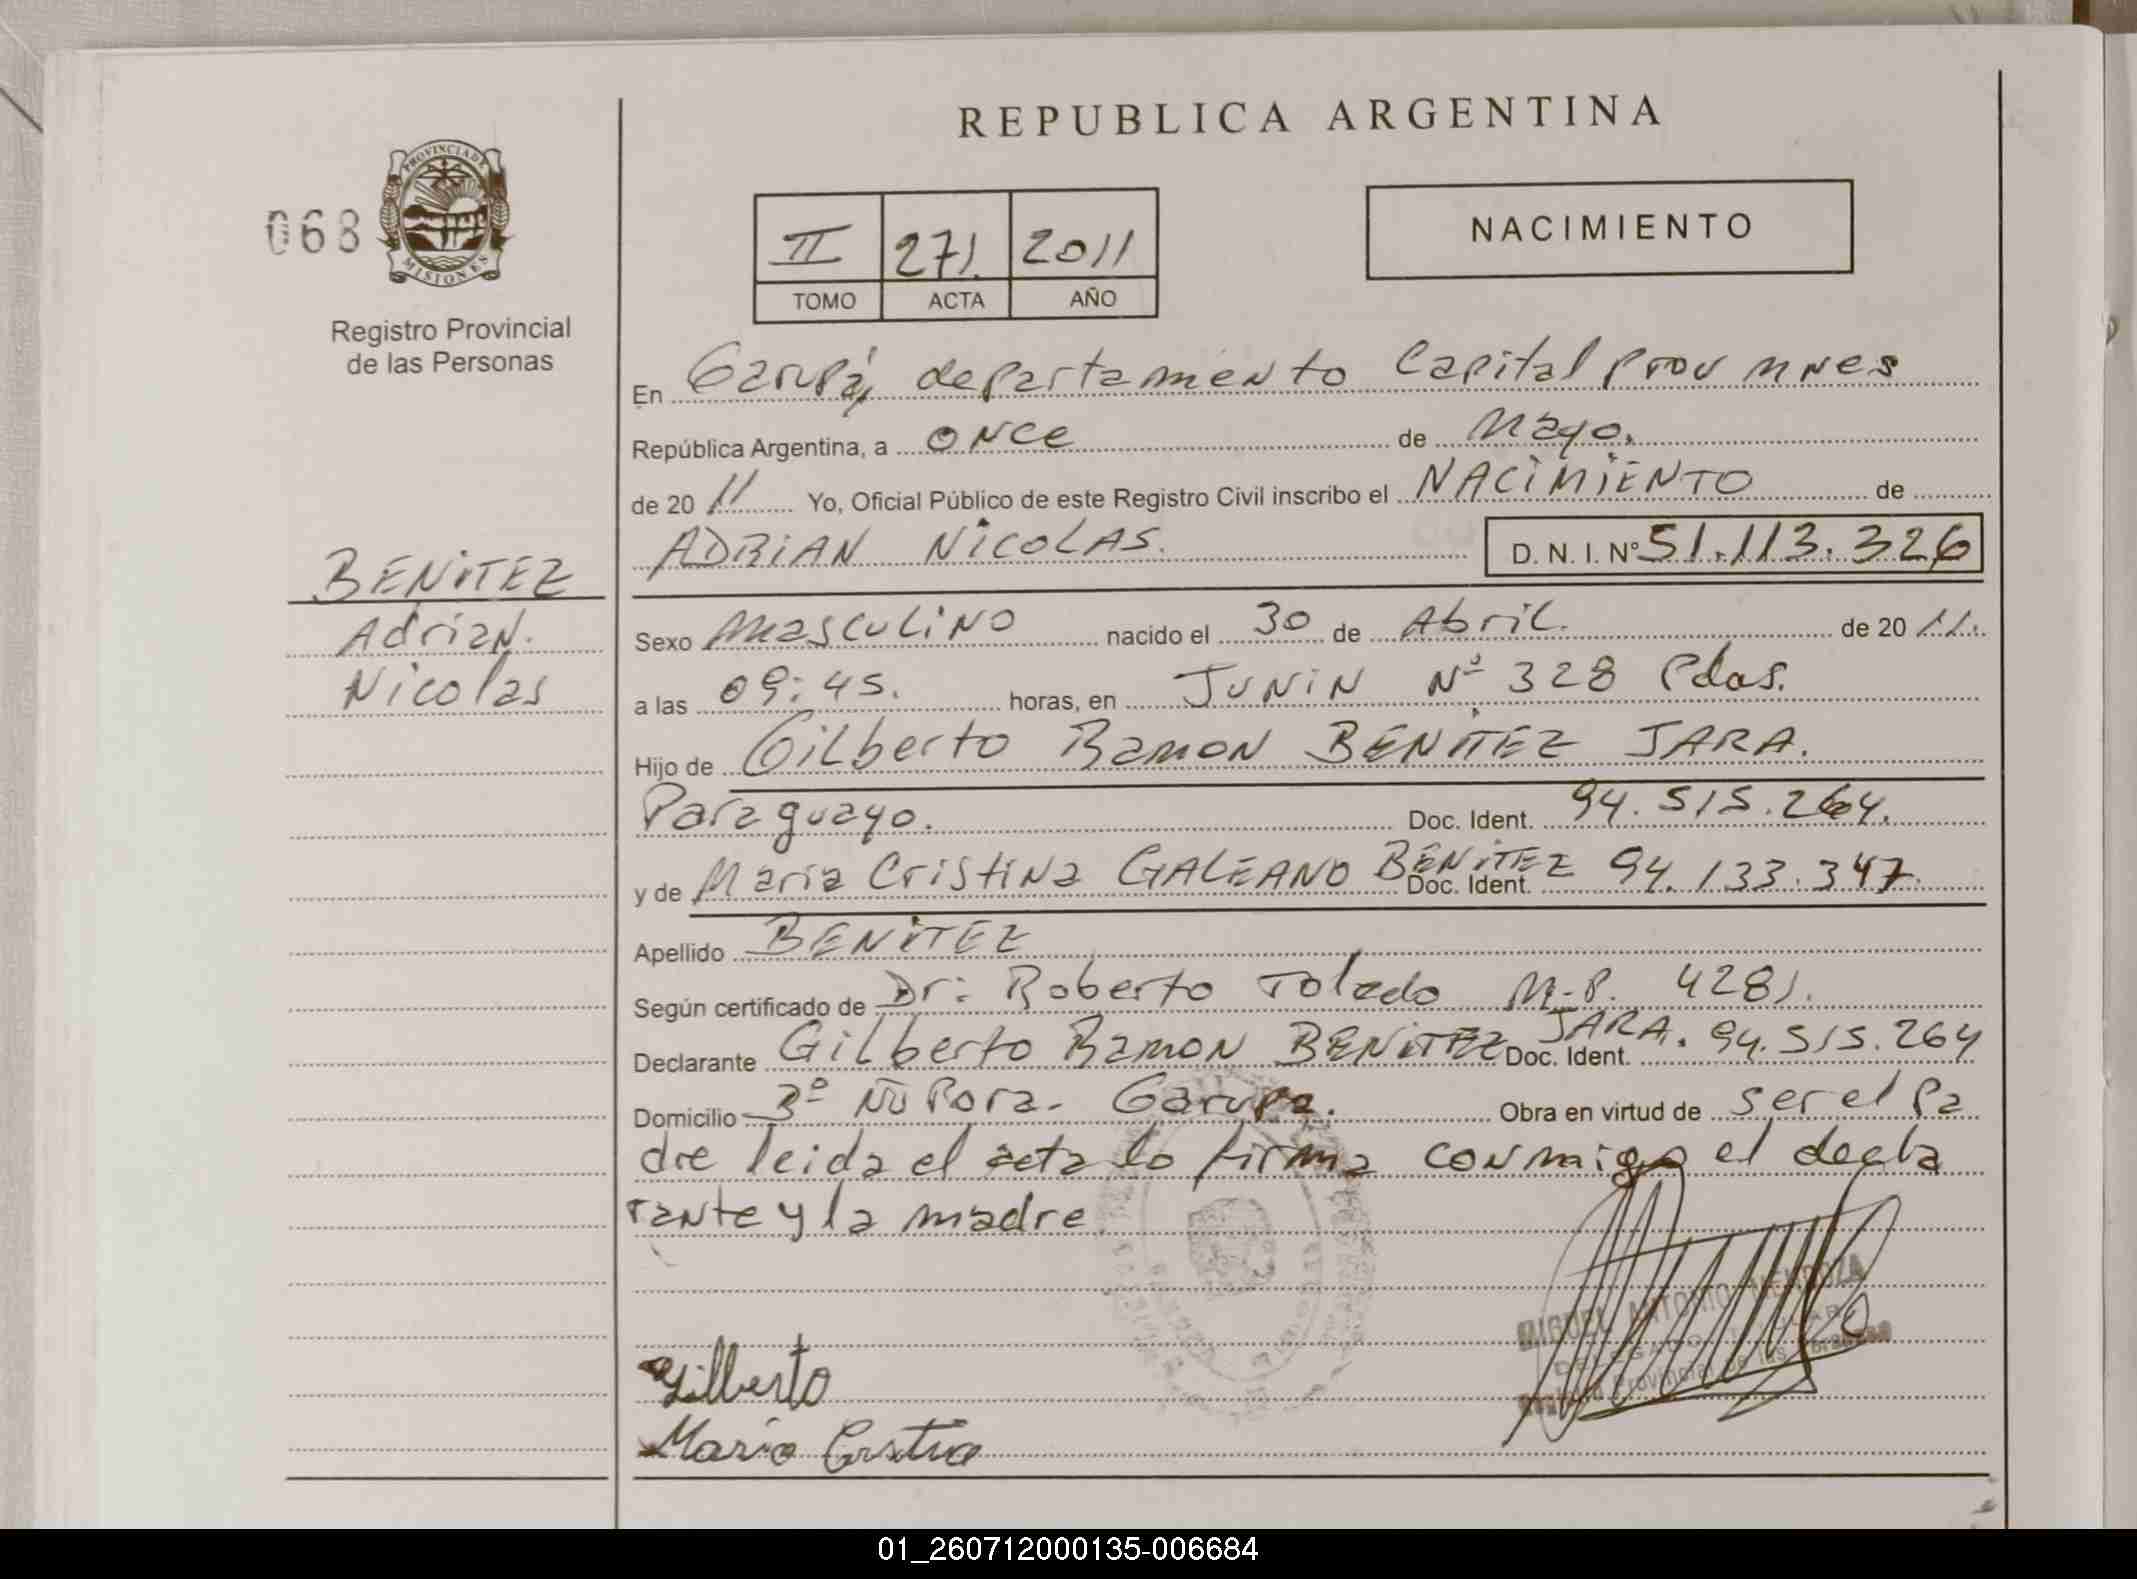 REPUBLICA ARGENTINA
068
PROVINCIA DE
MISIONES
Registro Provincial
de las Personas
II 271. 2011
TOMO ACTA AÑO
NACIMIENTO
En Garupá, departamento Capital Prov mnes
República Argentina, a once de Mayo.
de 20 11 Yo, Oficial Público de este Registro Civil inscribo el NACIMIENTO de
ADRIAN NICOLAS. D. N. I. Nº 51.113.326
BENITEZ
Adrian.
Nicolas
Sexo masculino nacido el 30 de Abril. de 20 11.
a las 09:45. horas, en JUNIN Nº 328 Pdas.
Hijo de Gilberto Ramon BENITEZ JARA.
Paraguayo. Doc. Ident. 94.515.264.
y de Maria Cristina GALEANO BENITEZ Doc. Ident. 94.133.347.
Apellido BENITEZ
Según certificado de Dr: Roberto Toledo M.P. 4281.
Declarante Gilberto Ramon BENITEZ JARA. Doc. Ident. 94.515.264
Domicilio Bº Ñu Pora. Garupa. Obra en virtud de ser el Pa
dre leida el acta lo firma conmigo el decla
rante y la madre
MIGUEL ANTONIO MENDOZA
DELEGADO TITULAR
Registro Provincial de las Personas
Gilberto
Maria Cristina
01_260712000135-006684